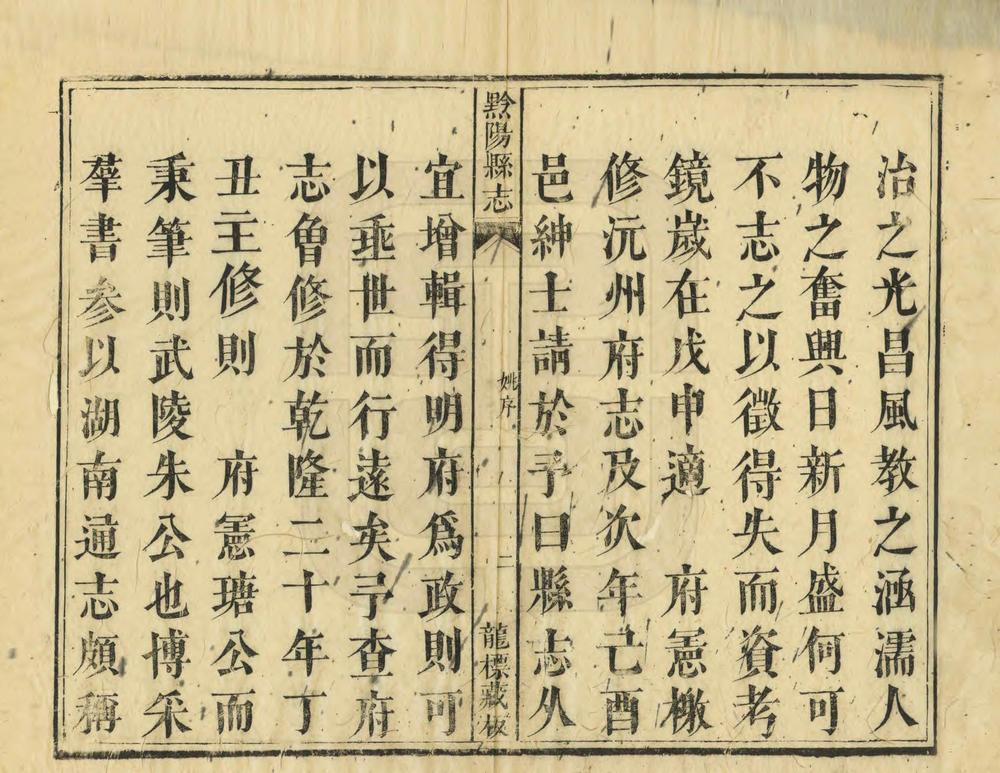 治之光昌風教之涵濡人
物之奮興日新月盛何可
不志之以徵得失而資考
鏡歲在戊申適　府憲檄
修沅州府志及次年己酉
邑紳士請於予曰縣志久
黔陽縣志
姚序
二
龍標藏板
宜增輯得明府爲政則可
以垂世而行遠矣予查府
志魯修於乾隆二十年丁
丑主修則　府憲瑭公而
秉筆則武陵朱公也博采
羣書參以湖南通志頗稱